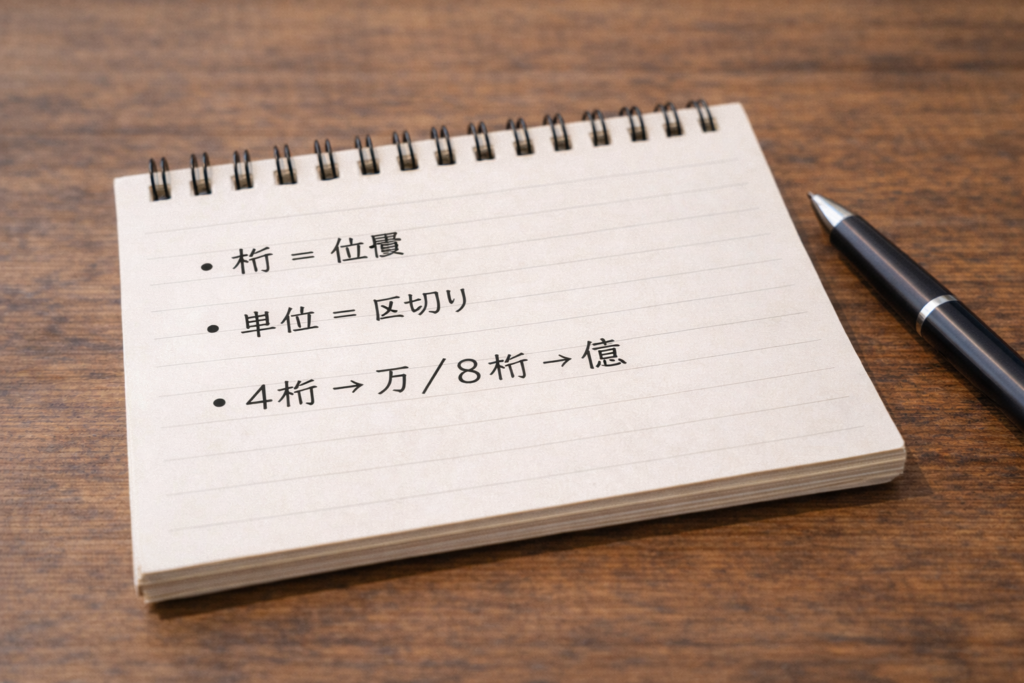 • 桁 = 位置
• 単位 = 区切り
• 4桁 → 万 / 8桁 → 億